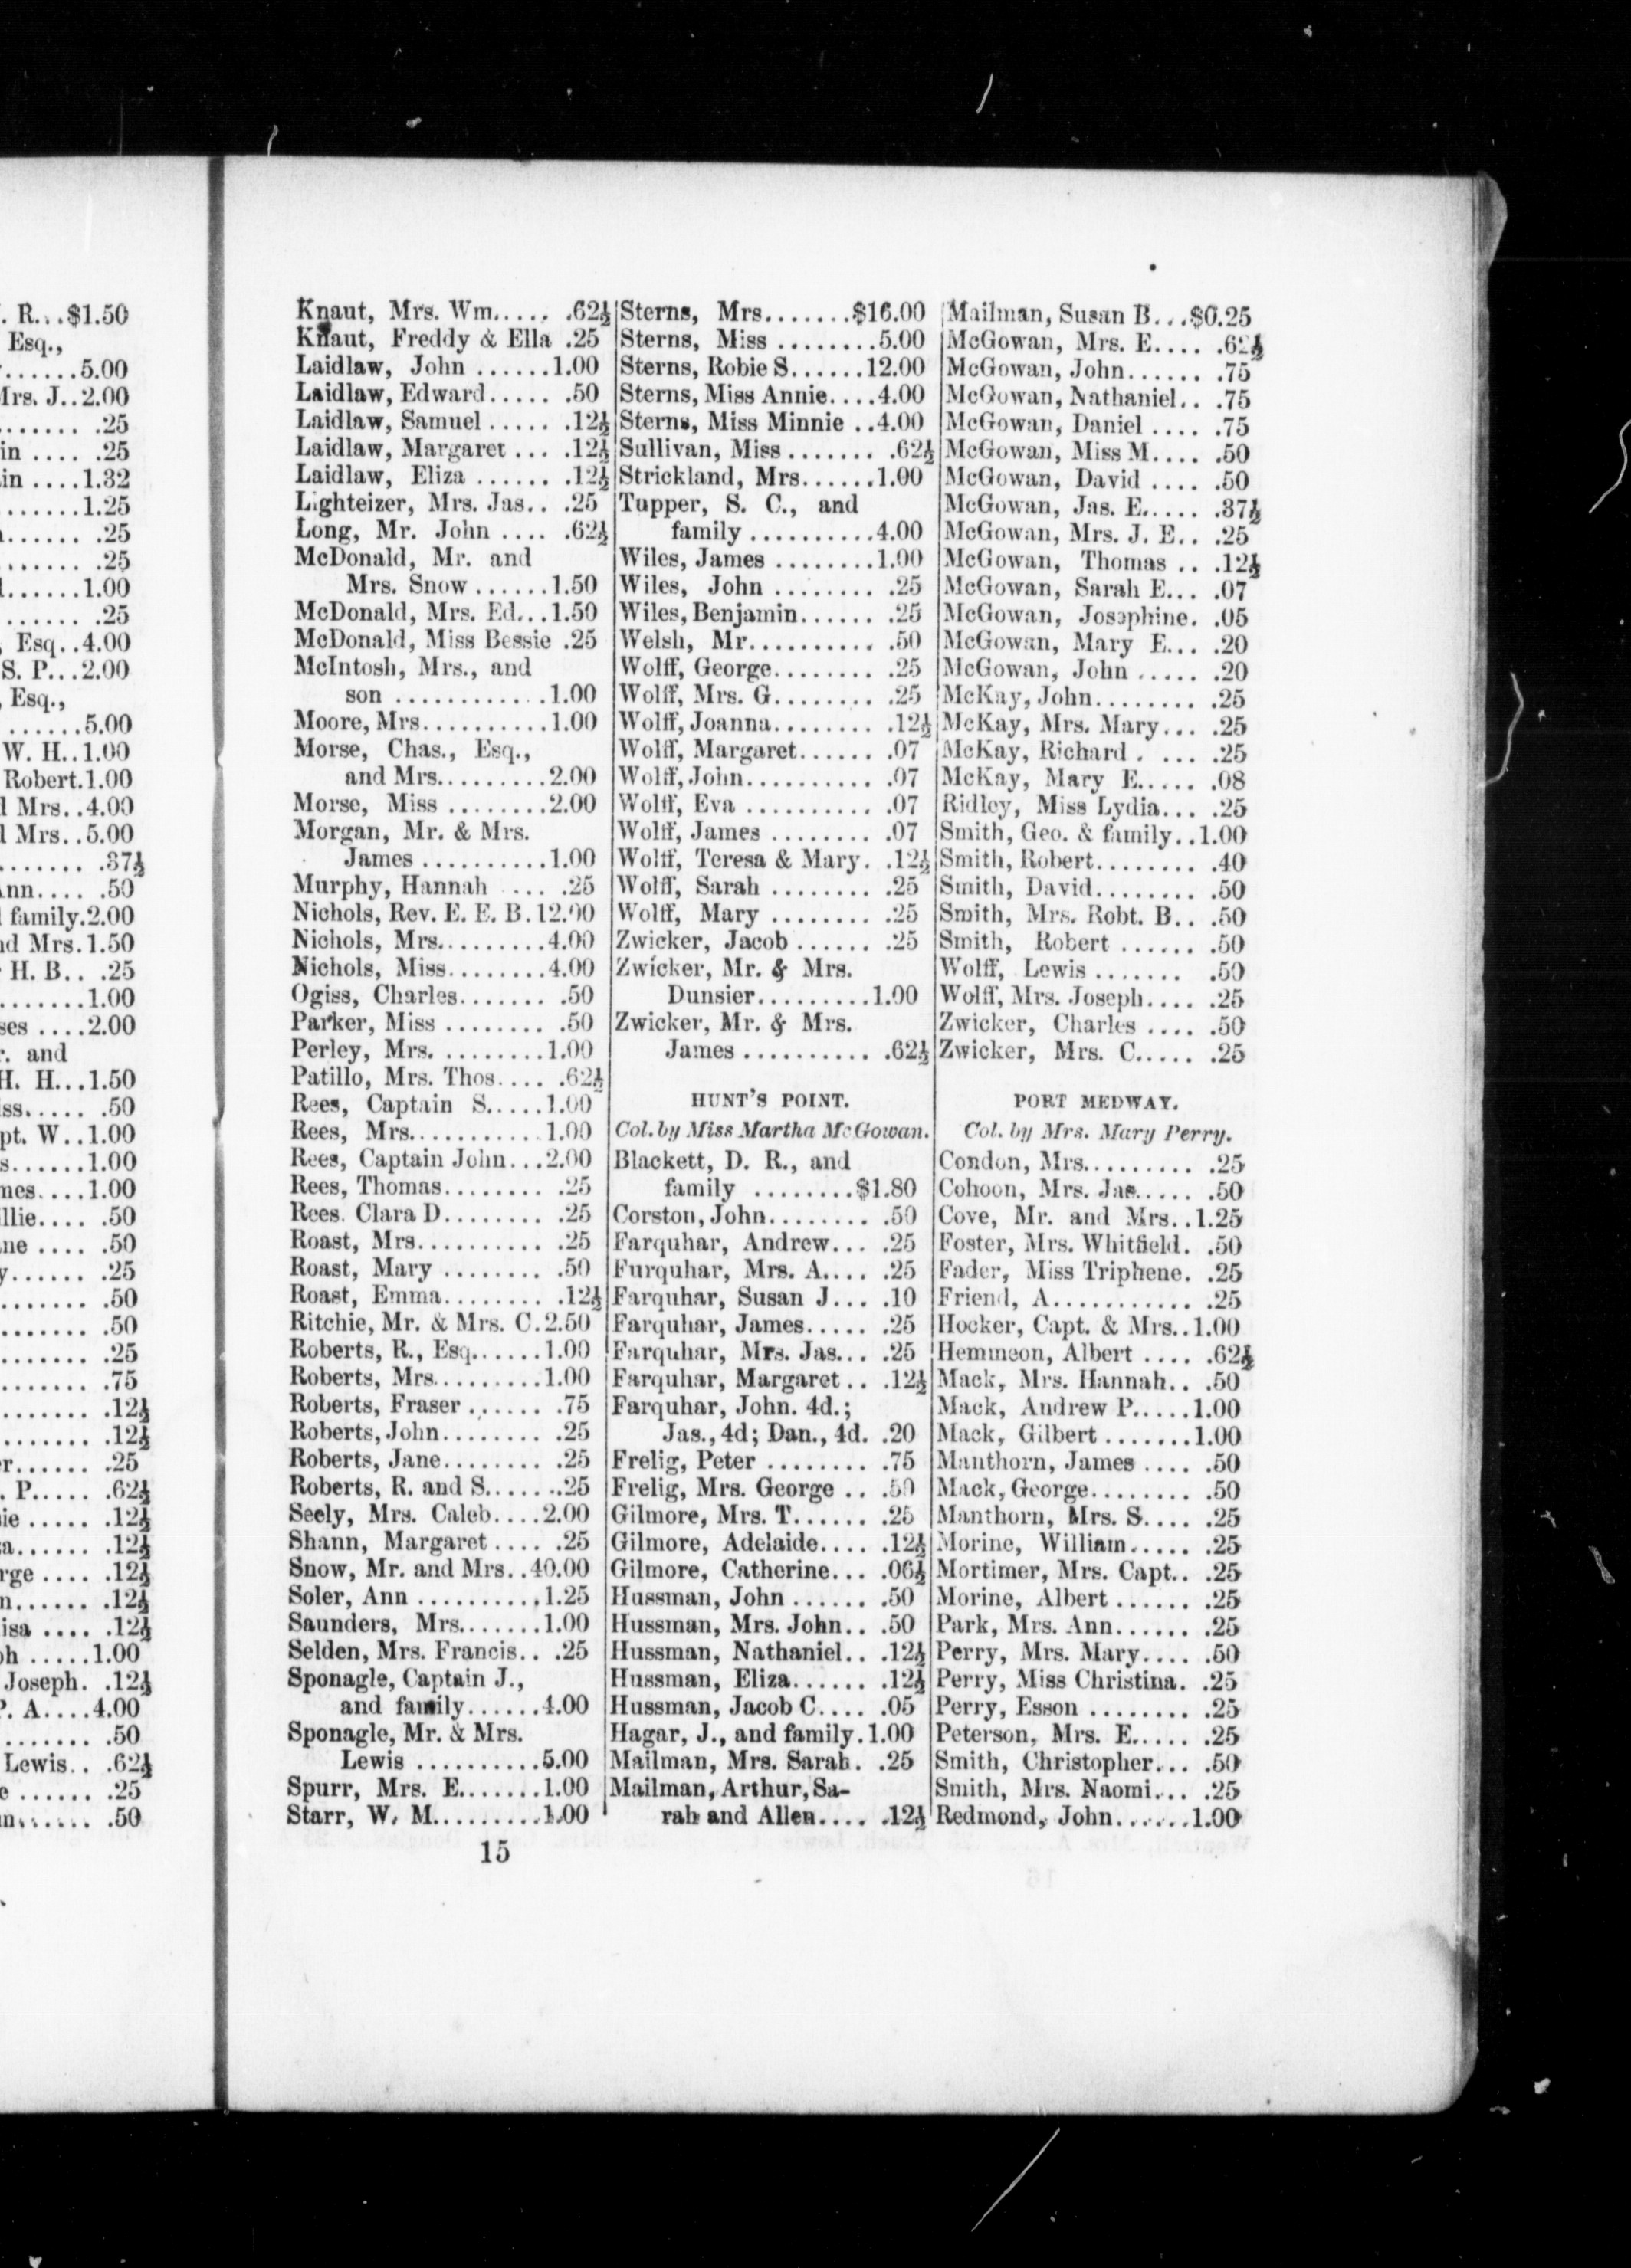 . R...$1.50
Esq.,
......5.00
Mrs. J..2.00
....... .25
in .... .25
in ....1.32
.......1.25
....... .25
....... .25
......1.00
....... .25
Esq..4.00
S. P...2.00
, Esq.,
......5.00
W. H..1.00
Robert.1.00
Mrs..4.00
Mrs..5.00
....... .37½
Ann.... .50
family.2.00
Mrs.1.50
H. B.. .25
.......1.00
ses ....2.00
. and
H. H...1.50
ss..... .50
pt. W..1.00
s......1.00
mes....1.00
llie.... .50
ne .... .50
y...... .25
....... .50
....... .50
....... .25
....... .75
....... .12½
....... .12½
r...... .25
. P..... .62½
ie ..... .12½
a...... .12½
rge .... .12½
n...... .12½
isa .... .12½
ph .....1.00
Joseph. .12½
P. A....4.00
....... .50
Lewis.. .62½
e ...... .25
n...... .50
Knaut, Mrs. Wm..... .62½
Knaut, Freddy & Ella .25
Laidlaw, John ......1.00
Laidlaw, Edward..... .50
Laidlaw, Samuel ..... .12½
Laidlaw, Margaret ... .12½
Laidlaw, Eliza ...... .12½
Lighteizer, Mrs. Jas.. .25
Long, Mr. John .... .62½
McDonald, Mr. and
Mrs. Snow ......1.50
McDonald, Mrs. Ed...1.50
McDonald, Miss Bessie .25
McIntosh, Mrs., and
son ............1.00
Moore, Mrs..........1.00
Morse, Chas., Esq.,
and Mrs.........2.00
Morse, Miss ........2.00
Morgan, Mr. & Mrs.
James ..........1.00
Murphy, Hannah .... .25
Nichols, Rev. E. E. B.12.00
Nichols, Mrs.........4.00
Nichols, Miss........4.00
Ogiss, Charles....... .50
Parker, Miss ........ .50
Perley, Mrs. ........1.00
Patillo, Mrs. Thos.... .62½
Rees, Captain S.....1.00
Rees, Mrs...........1.00
Rees, Captain John...2.00
Rees, Thomas........ .25
Rees. Clara D........ .25
Roast, Mrs.......... .25
Roast, Mary ........ .50
Roast, Emma......... .12½
Ritchie, Mr. & Mrs. C.2.50
Roberts, R., Esq......1.00
Roberts, Mrs.........1.00
Roberts, Fraser ...... .75
Roberts, John........ .25
Roberts, Jane........ .25
Roberts, R. and S...... .25
Seely, Mrs. Caleb....2.00
Shann, Margaret .... .25
Snow, Mr. and Mrs..40.00
Soler, Ann ..........1.25
Saunders, Mrs.......1.00
Selden, Mrs. Francis.. .25
Sponagle, Captain J.,
and family......4.00
Sponagle, Mr. & Mrs.
Lewis ..........5.00
Spurr, Mrs. E.......1.00
Starr, W. M.........1.00
15
Sterns, Mrs.......$16.00
Sterns, Miss ........5.00
Sterns, Robie S......12.00
Sterns, Miss Annie....4.00
Sterns, Miss Minnie ..4.00
Sullivan, Miss ....... .62½
Strickland, Mrs......1.00
Tupper, S. C., and
family ..........4.00
Wiles, James ........1.00
Wiles, John ........ .25
Wiles, Benjamin...... .25
Welsh, Mr.......... .50
Wolff, George........ .25
Wolff, Mrs. G........ .25
Wolff, Joanna........ .12½
Wolff, Margaret...... .07
Wolff, John.......... .07
Wolff, Eva .......... .07
Wolff, James ........ .07
Wolff, Teresa & Mary. .12½
Wolff, Sarah ........ .25
Wolff, Mary ........ .25
Zwicker, Jacob ...... .25
Zwicker, Mr. & Mrs.
Dunsier.........1.00
Zwicker, Mr. & Mrs.
James .......... .62½
HUNT'S POINT.
Col. by Miss Martha McGowan.
Blackett, D. R., and
family ........$1.80
Corston, John........ .50
Farquhar, Andrew... .25
Furquhar, Mrs. A.... .25
Farquhar, Susan J... .10
Farquhar, James..... .25
Farquhar, Mrs. Jas... .25
Farquhar, Margaret .. .12½
Farquhar, John. 4d.;
Jas., 4d; Dan., 4d. .20
Frelig, Peter ........ .75
Frelig, Mrs. George .. .50
Gilmore, Mrs. T...... .25
Gilmore, Adelaide.... .12½
Gilmore, Catherine... .06½
Hussman, John ...... .50
Hussman, Mrs. John.. .50
Hussman, Nathaniel.. .12½
Hussman, Eliza...... .12½
Hussman, Jacob C.... .05
Hagar, J., and family.1.00
Mailman, Mrs. Sarah. .25
Mailman, Arthur, Sa-
rah and Allen.... .12½
Mailman, Susan B...$0.25
McGowan, Mrs. E.... .62½
McGowan, John...... .75
McGowan, Nathaniel.. .75
McGowan, Daniel .... .75
McGowan, Miss M.... .50
McGowan, David .... .50
McGowan, Jas. E..... .37½
McGowan, Mrs. J. E.. .25
McGowan, Thomas .. .12½
McGowan, Sarah E... .07
McGowan, Josephine. .05
McGowan, Mary E... .20
McGowan, John ..... .20
McKay, John........ .25
McKay, Mrs. Mary... .25
McKay, Richard . ... .25
McKay, Mary E..... .08
Ridley, Miss Lydia... .25
Smith, Geo. & family..1.00
Smith, Robert........ .40
Smith, David........ .50
Smith, Mrs. Robt. B.. .50
Smith, Robert ...... .50
Wolff, Lewis ....... .50
Wolff, Mrs. Joseph.... .25
Zwicker, Charles .... .50
Zwicker, Mrs. C..... .25
PORT MEDWAY.
Col. by Mrs. Mary Perry.
Condon, Mrs......... .25
Cohoon, Mrs. Jas..... .50
Cove, Mr. and Mrs..1.25
Foster, Mrs. Whitfield. .50
Fader, Miss Triphene. .25
Friend, A........... .25
Hocker, Capt. & Mrs..1.00
Hemmeon, Albert .... .62½
Mack, Mrs. Hannah.. .50
Mack, Andrew P.....1.00
Mack, Gilbert .......1.00
Manthorn, James .... .50
Mack, George........ .50
Manthorn, Mrs. S.... .25
Morine, William..... .25
Mortimer, Mrs. Capt.. .25
Morine, Albert ...... .25
Park, Mrs. Ann...... .25
Perry, Mrs. Mary.... .50
Perry, Miss Christina. .25
Perry, Esson ........ .25
Peterson, Mrs. E..... .25
Smith, Christopher... .50
Smith, Mrs. Naomi... .25
Redmond, John......1.00